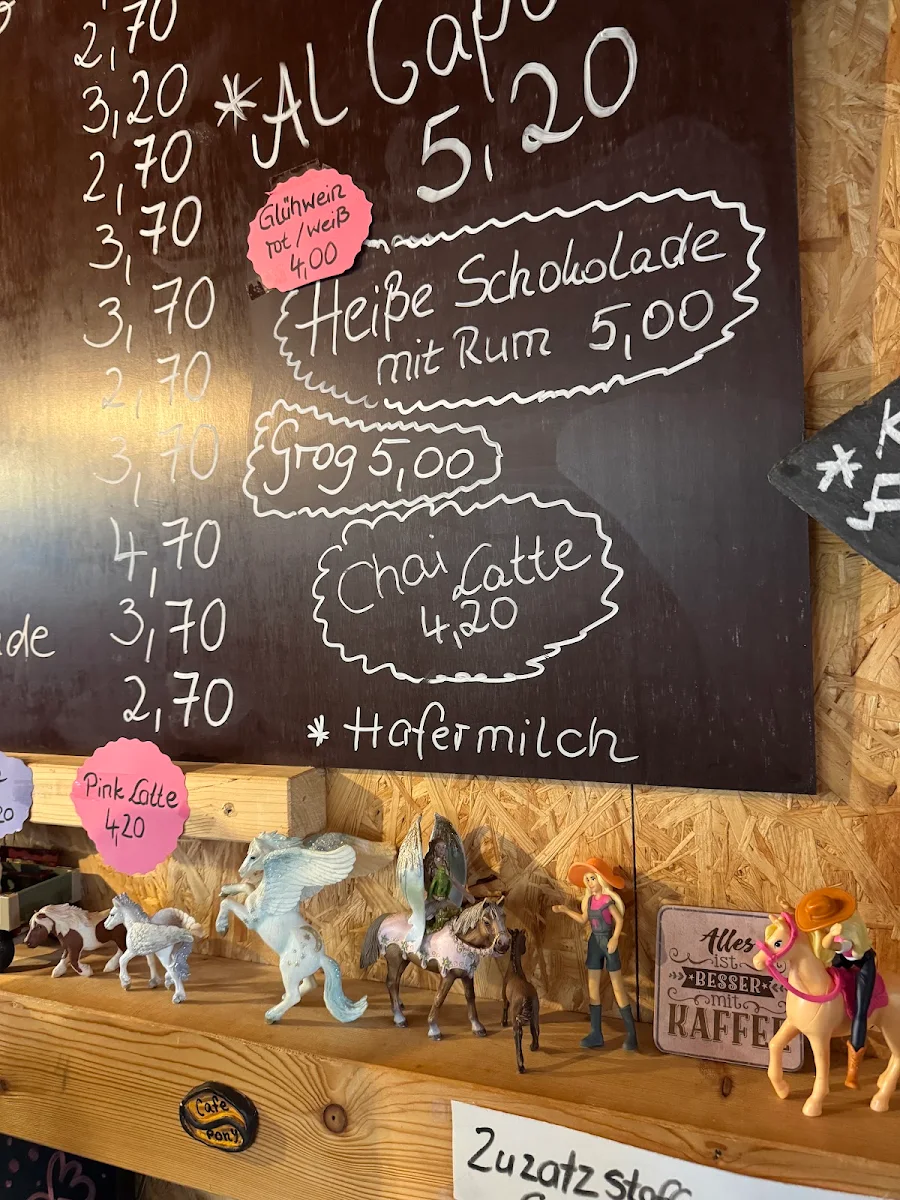 2,70
3,20
2,70
3,70
3,70
2,70
3,70
4,70
3,70
2,70
*Al Capo
5,20
Glühwein
rot/weiß
4,00
Heiße Schokolade
mit Rum 5,00
Grog 5,00
Chai Latte
4,20
* Hafermilch
Pink Latte
4,20
20
Alles
ist
BESSER
mit
KAFFEE
Cafe
Pony
Zuzatzstoff